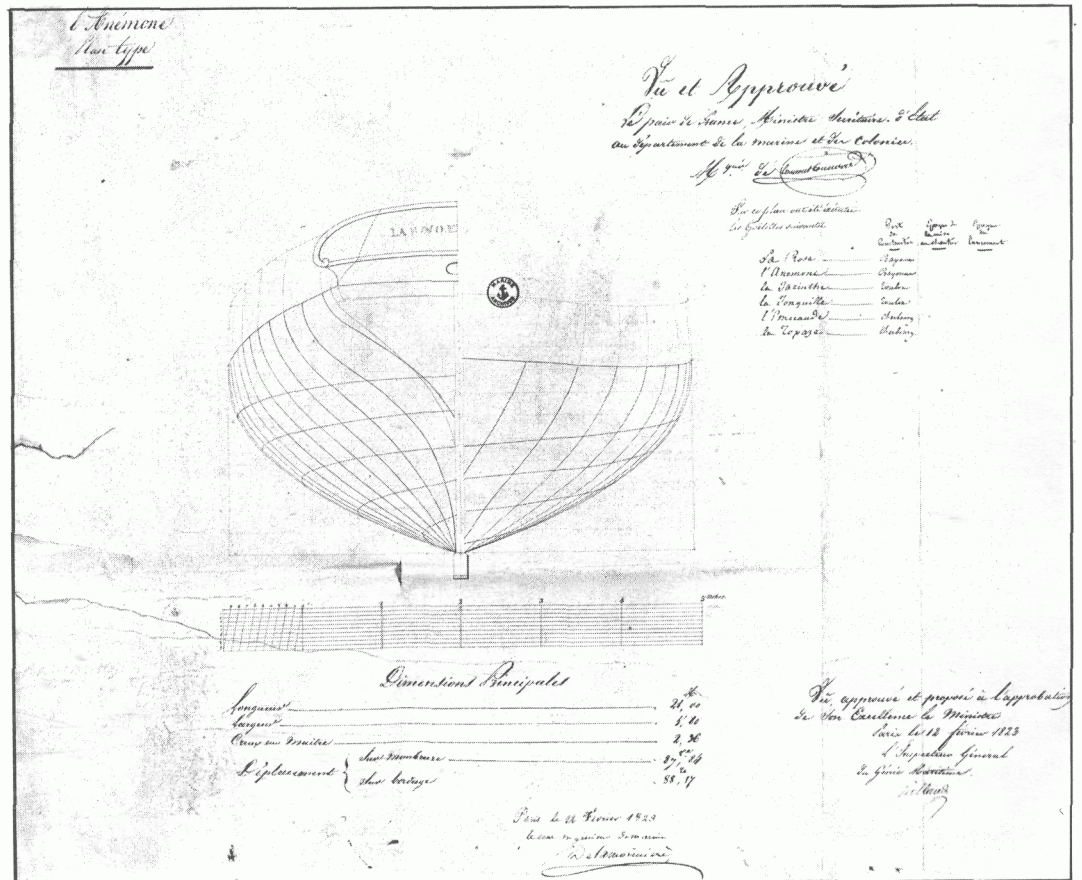 l'Anémone
Plan type
Vu et Approuvé
Le pair de France, Ministre Secrétaire d'Etat
au département de la marine et des Colonies.
Mquis de Clermont Tonnerre
Sur ce plan ont été exécutées
les Goëlettes suivantes
Port
de
Construction
Epoque de
la mise
en chantier
Epoque
du
Lancement
La Rose Bayonne
l'Anemone Bayonne
la Jacinthe Toulon
la Jonquille Toulon
l'Emeraude Cherbourg
la Topaze Cherbourg
MARINE
ARCHIVES
1 2 3 4 5 Mètres
Dimensions Principales
M
Longueur 21,00
Largeur
Creux au Maître 2,36
Déplacement
sur membrure 87,84
sur bordage 88,17
Vu, approuvé et proposé à l'approbation
de Son Excellence le Ministre
Paris le 12 février 1823
L'Inspecteur Général
du Génie Maritime.
Rolland
Paris le Février 1823
Delamorinière